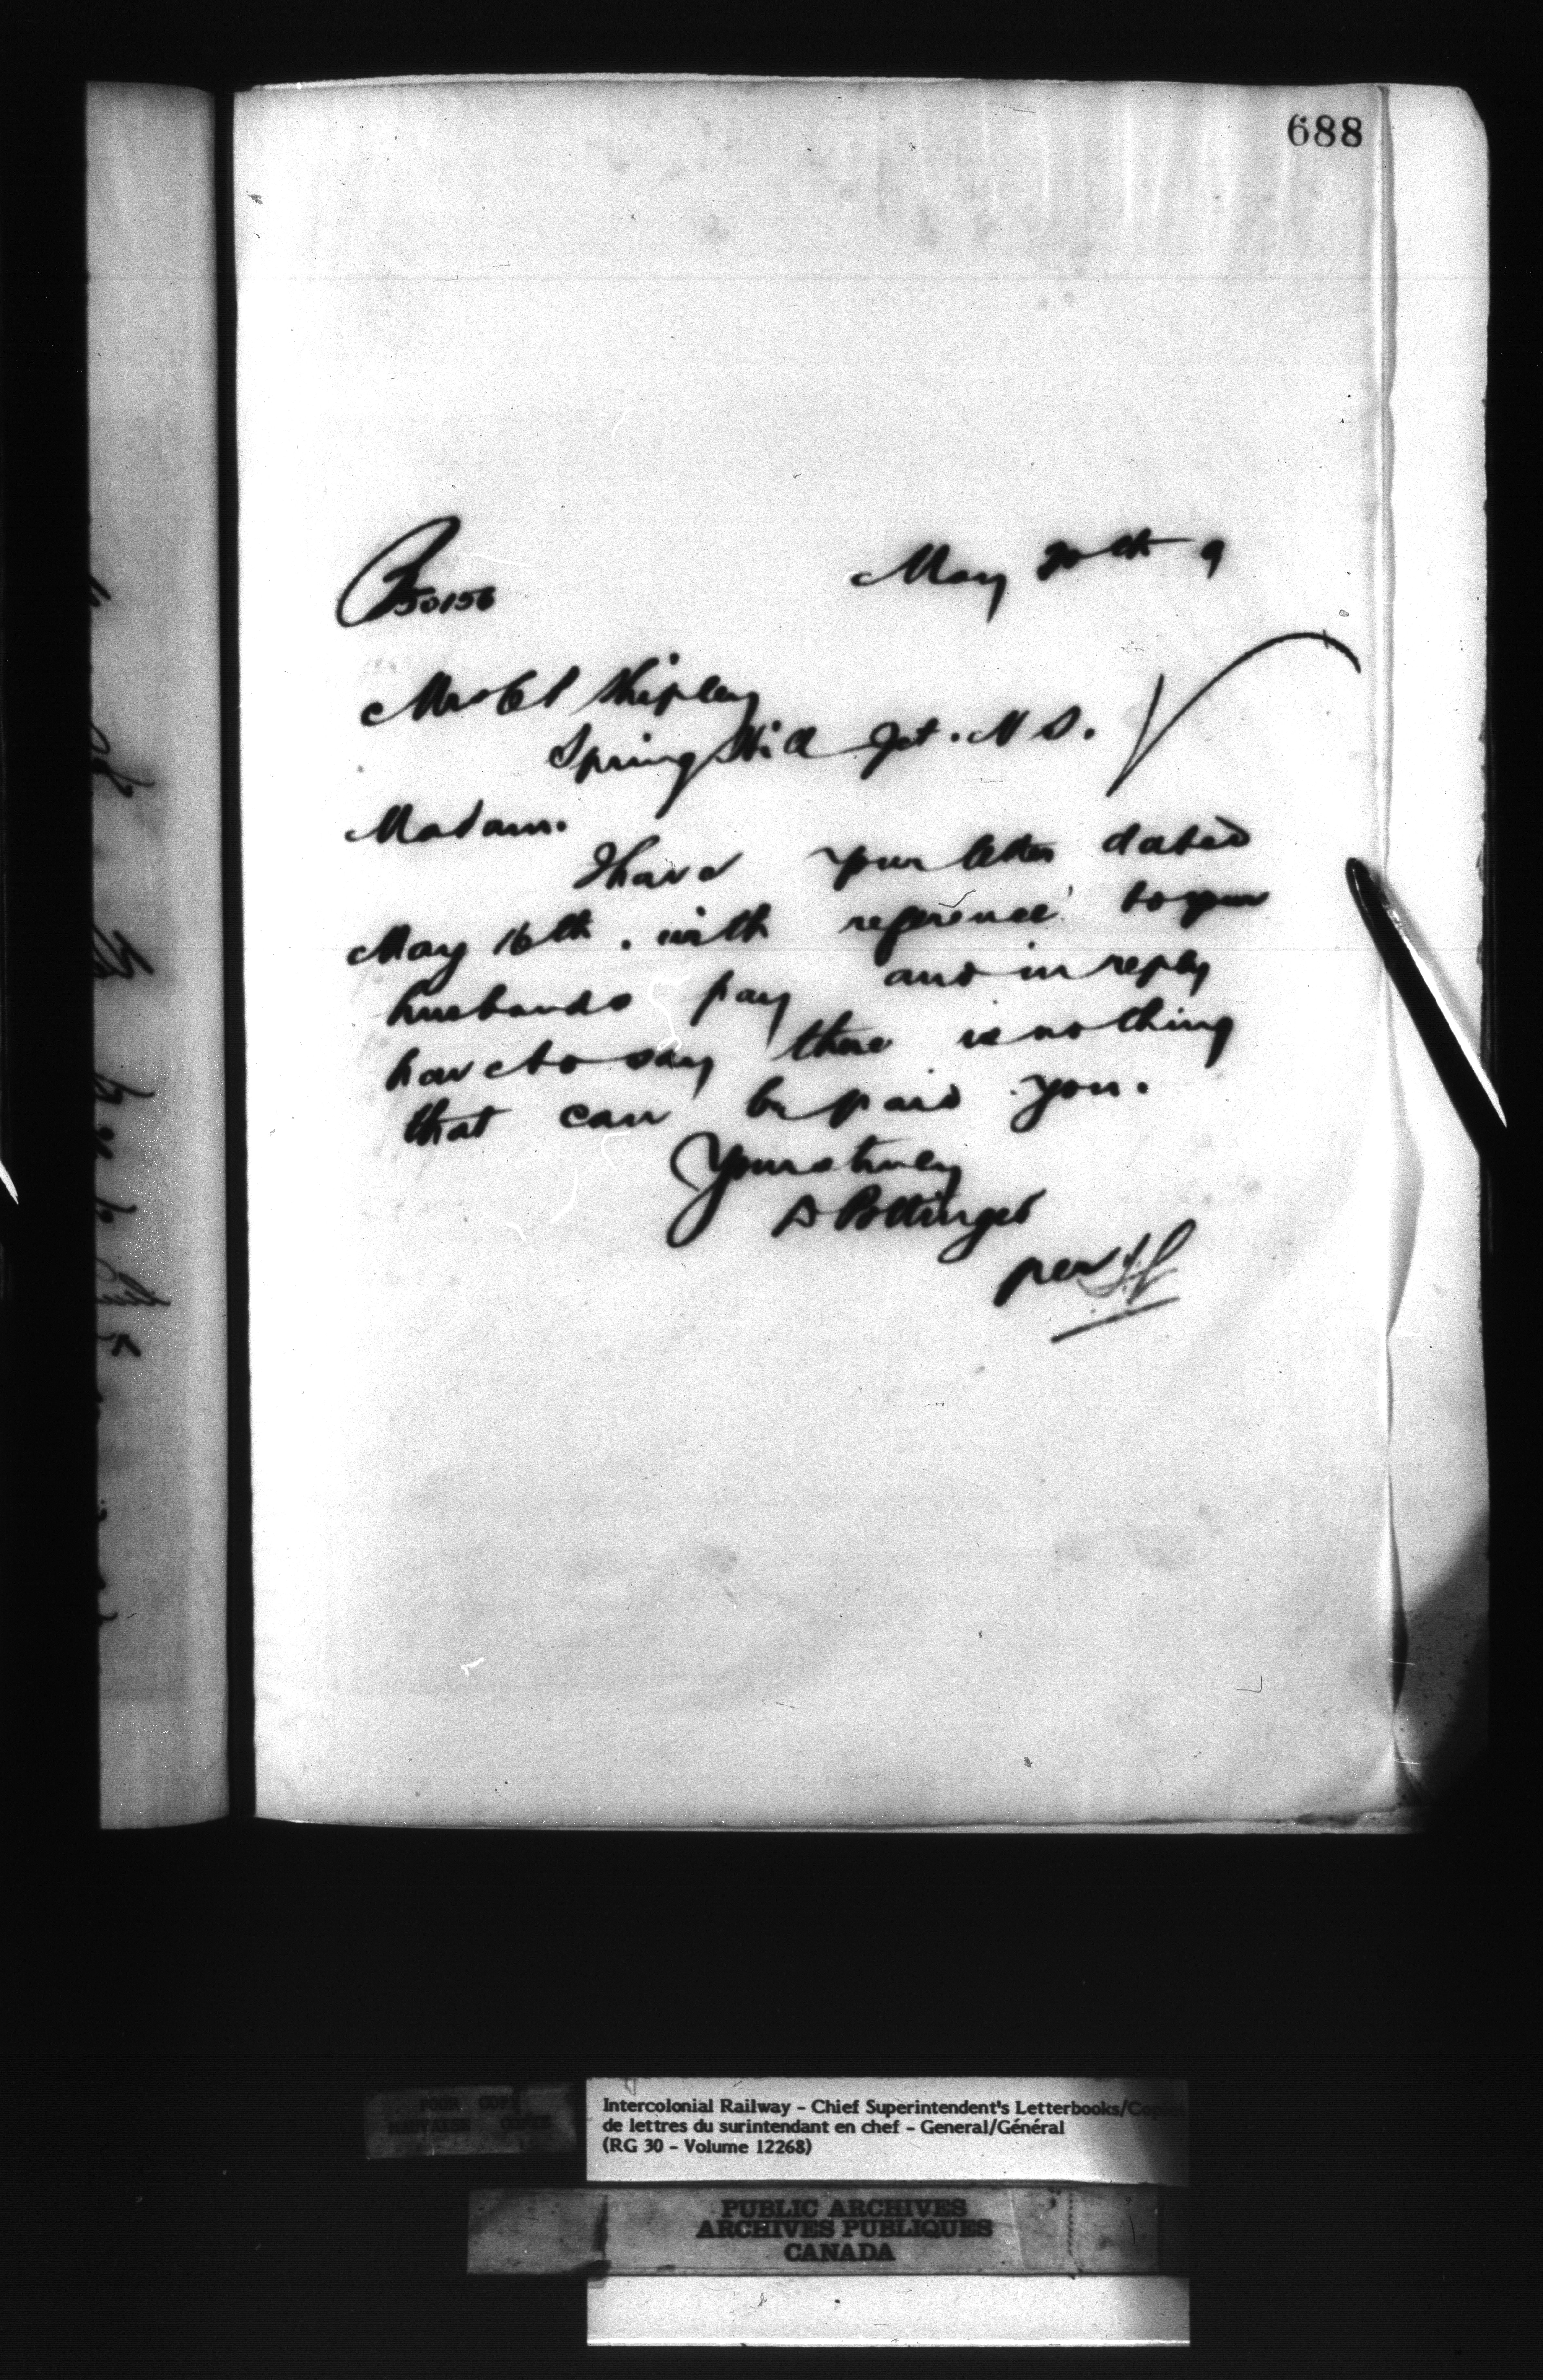 688
50156
May 20th 9
Shipley
Spring Hill Jct. N S.
Madam.
I have your letter dated
May 16th. with reference to your
husbands pay and in reply
have to say there is nothing
that can be paid you.
Yours truly
D Pottinger
per
POOR COPY
MAUVAISE COPIE
Intercolonial Railway - Chief Superintendent's Letterbooks/Copies
de lettres du surintendant en chef - General/Général
(RG 30 - Volume 12268)
PUBLIC ARCHIVES
ARCHIVES PUBLIQUES
CANADA